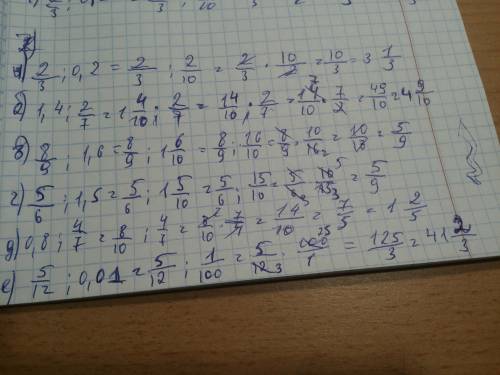 а) 2/3 ; 0,2 = 2/3 ; 2/10 = 2/3 · 10/2 = 10/3 = 3 1/3
б) 1,4 ; 2/7 = 1 4/10 ; 2/7 = 14/10 ; 2/7 = 14/10 · 7/2 = 49/10 = 4 9/10
в) 8/9 ; 1,6 = 8/9 ; 1 6/10 = 8/9 ; 16/10 = 8/9 · 10/16 2 = 10/18 = 5/9
г) 5/6 ; 1,5 = 5/6 ; 1 5/10 = 5/6 ; 15/10 = 5/6 · 10 5/15 3 = 5/9
д) 0,8 ; 4/7 = 8/10 ; 4/7 = 8 2/10 · 7/4 = 14/10 = 7/5 = 1 2/5
е) 5/12 ; 0,01 = 5/12 ; 1/100 = 5/12 3 · 100 25/1 = 125/3 = 41 2/3